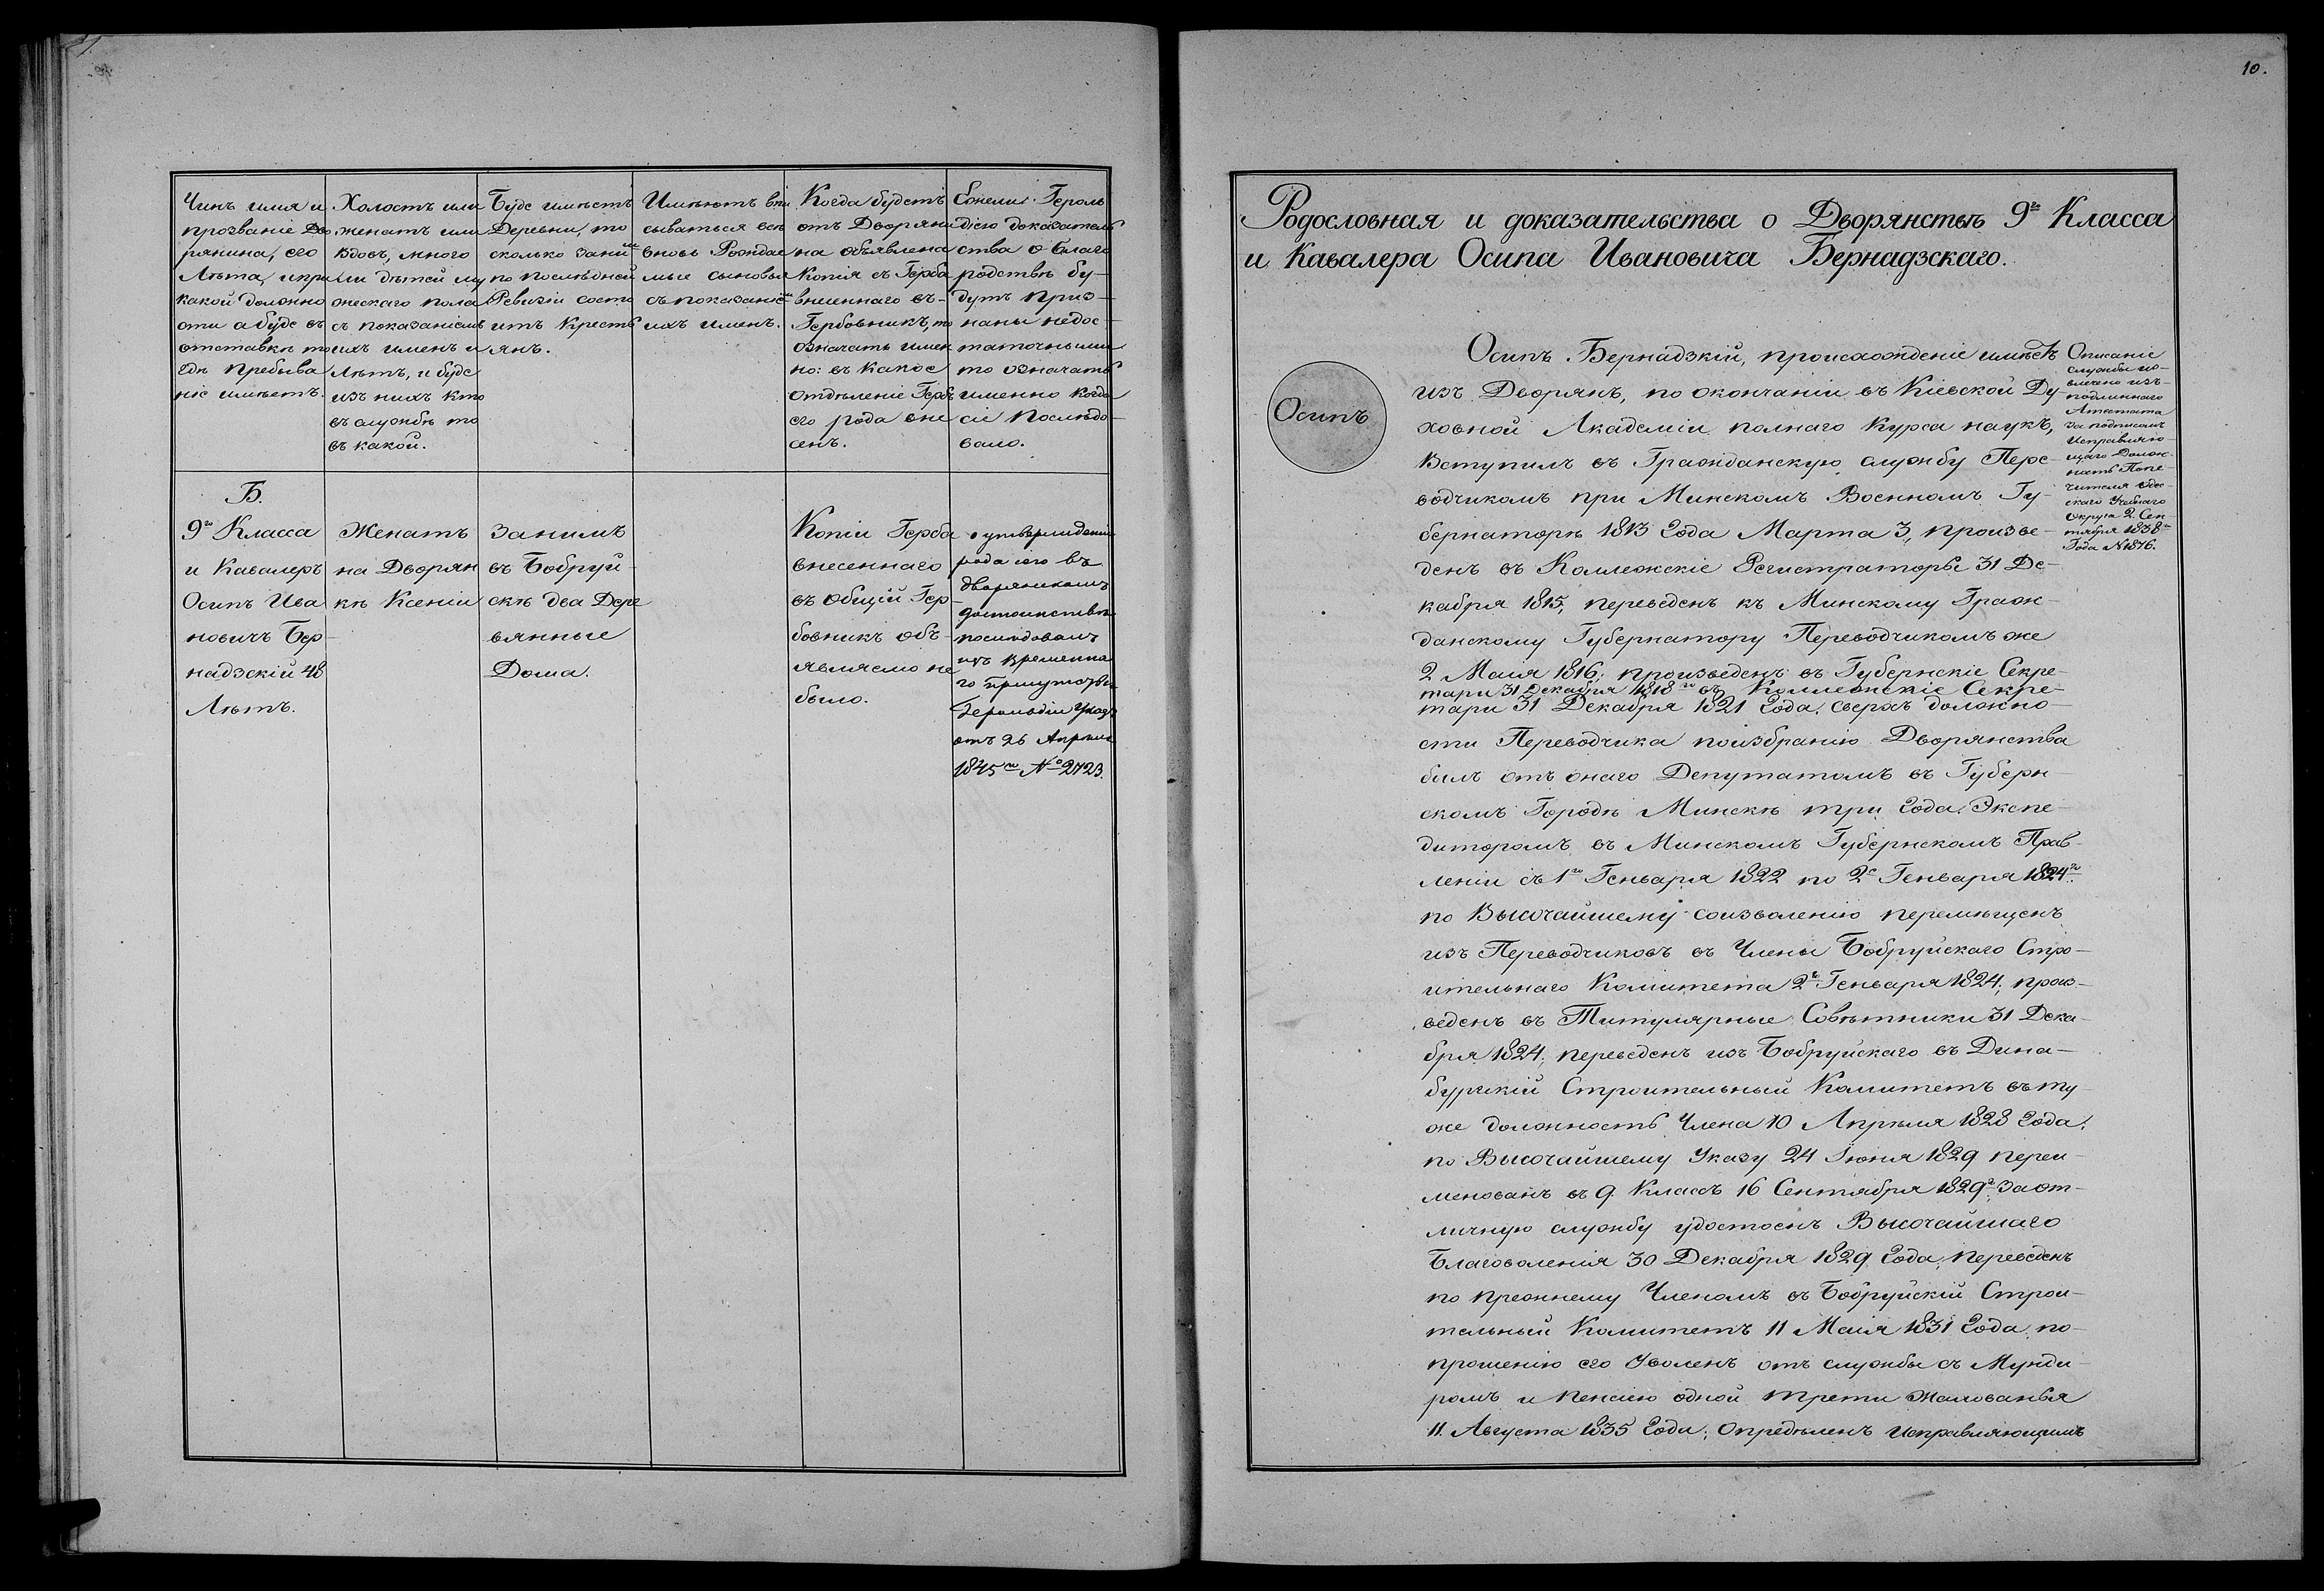 Чинъ имя и
прозваніе Дво
рянина, его
Лѣта, и при
какой должно
сти а буде въ
отставкѣ то
гдѣ пребыва
ніе имѣетъ.
Холостъ или
женатъ или
вдовъ, много
ли дѣтей му
жескаго пола
съ показаніемъ
ихъ именъ и
Лѣтъ, и буде
изъ нихъ кто
въ службѣ то
въ какой.
Буде имѣетъ
Деревни, то
сколько заним
по послѣдней
Ревизіи состо
итъ Кресть
янъ.
Имѣютъ впи
сываться всѣ
вновь Рождае
мые сыновья
съ показаніем
ихъ именъ.
Когда будетъ
отъ Дворяни
на объявлена
Копія съ Герба
внесеннаго въ-
Гербовникъ, то
означать имен
но: въ какое
отдѣленіе Герб
его рода вне
сенъ.
Ежели Героль
дією доказатель
ства о благо
родствѣ бу-
дутъ приз-
наны недос-
таточными
то означать
именно когда
сіе послѣдо-
вало.
Б.
9го Класса
и Кавалеръ
Осипъ Ива
новичъ Бер-
надзскій 48
Лѣтъ.
Женатъ
на Дворян
кѣ Ксеніи
Занимъ
въ Бобруй-
скѣ два Дере
вянные
Дома.
Копіи Герба
внесеннаго
въ Общій Гер-
бовникъ объ-
являемо не
было.
о утвержденіи
рода его въ
дворянскомъ
достоинствѣ
послѣдовалъ
изъ Временна
го Присутствія
Герольдіи Указъ
отъ 26 Апрѣля
1845го № 2723.
10.
Родословная и доказательства о Дворянствѣ 9го Класса
и Кавалера Осипа Ивановича Бернадзскаго.
Осипъ
Осипъ Бернадзкій, происхожденіе имѣетъ
изъ Дворянъ, по окончаніи въ Кіевской Ду-
ховной Академіи полнаго Курса наукъ,
Вступилъ въ Гражданскую службу Пере-
водчикомъ при Минскомъ Военномъ Гу-
бернаторѣ 1813 Года Марта 3, произве-
денъ въ Коллежскіе Регистраторы 31 Де-
кабря 1815, переведенъ къ Минскому Граж-
данскому Губернатору Переводчикомъ же
2 Маія 1816; произведенъ въ Губернскіе Секре-
тари 31 Декабря 1818го въ Коллежскіе Секре-
тари 31 Декабря 1821 Года. сверхъ должно-
сти Переводчика поизбранію Дворянства
былъ отъ онаго Депутатомъ въ Губерн-
скомъ Городѣ Минскѣ три Года. Экспе-
диторомъ въ Минскомъ Губернскомъ Прав-
леніи съ 1го Генваря 1822 по 2е Генваря 1824го.
по Высочайшему соизволенію перемѣщенъ
изъ Переводчиковъ въ Члены Бобруйскаго Стро-
ительнаго Комитета 2го Генваря 1824; произ-
веденъ въ Титулярные Совѣтники 31 Дека-
бря 1824; переведенъ изъ Бобруйскаго въ Дина-
бургскій Строительный Комитетъ въ ту-
же должность Члена 10 Апрѣля 1828 Года.
по Высочайшему Указу 24 Іюня 1829 переи-
менованъ въ 9. Классъ 16 Сентября 1829г. За от-
личную службу удостоенъ Высочайшаго
Благоволенія 30 Декабря 1829 Года, переведенъ
по прежнему Членомъ въ Бобруйскій Строи-
тельный Комитетъ 11 Маія 1831 Года. по-
прошенію его Уволенъ отъ службы съ Мунди-
ромъ и пенсією одной трети жалованья
11. Августа 1835 Года; Опредѣленъ исправляющимъ
Описаніе
службы из-
влечено изъ-
подлиннаго
Аттестата
за подписомъ
Исправляю-
щаго Долж-
ность Попе-
чителя Одес-
скаго Учебнаго
Округа 2. Сен-
тября 1838го
Года № 1876.